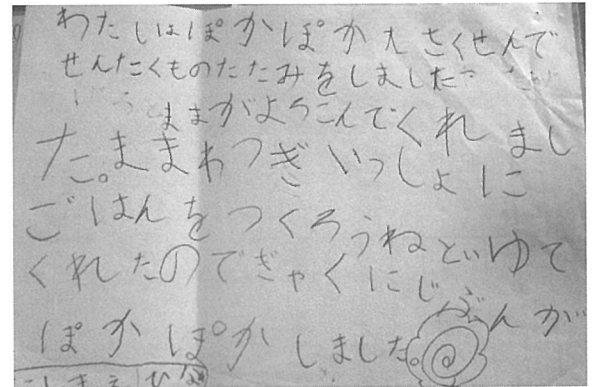 わたしはぽかぽかえさくせんで
せんたくものたたみをしました
ままがようこんでくれまし
た。ままわつぎいっしょに
ごはんをつくろうねとゆて
くれたのでぎゃくにじぶんが
ぽかぽかしました。